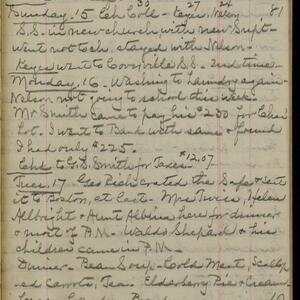 30 27 24
Sunday. 15 Cold - Keyes, Nelson 81
S.S. in new church with new Supt-
went not to ch, stayed with Nelson.
Keyes went to S.S. 2nd time-
Monday, 16- Washing to Laundry again-
Nelson not going to school this week.
Mr Smith came to pay his $200 for
Lot. I went to Bank with same & found
I had only $225.
Chk to Smith for Taxes $12.07
Tues. 17 Geo Rich crated the Safe & sent
it to Boston, at last- Mrs Twiss, Helen
Albright & Aunt Albina here for dinner
& most of P.M.- Waldo Shepard & his
children came in P.M.
Dinner- Bean Soup- Cold Meat, Scallop
ed Carrots, Tea- Elderberry Pie & Cream